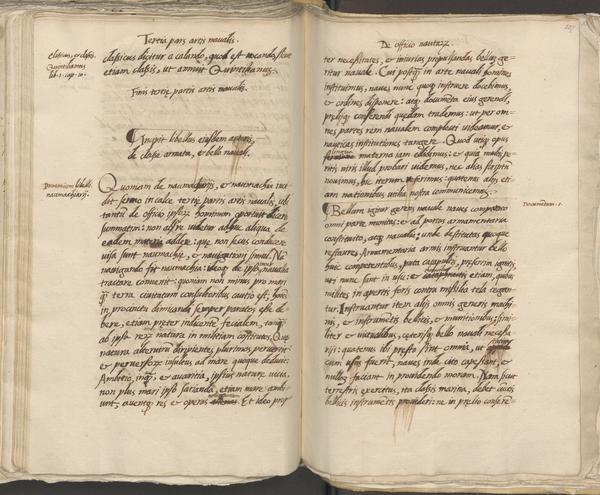 Tertia pars artis navalis.
classicus, et classis.
Quintilianus
lib. 1. cap. 10.
classicus dicitur a calando, quod est vocando, sicut
etiam classis, ut ait Quintilianus.
Finis tertie partis artis navalis.
Incipit libellus eiusdem autoris,
de classe armata, et bello navali.
Quoniam de naumachiarijs, et naumachia inci
dit sermo in calce tertie partis artis navalis, ubi
tantum de officio ipsorum hominum oportuit dicere
summatim: non abs re videtur adhuc aliqua de
eadem addere que non secus conducere
visa sunt naumachie, et navigationi simul. Na
navigando fit naumachia: ideoque de ipso
tractare convenit: quoniam non minus pro mari
quam terra civitatum consultoribus cautio est, huic
in procinctu dimicandi semper paratos esse de=
bere, etiam preter inducente fecialem, tanquam
ab ipsa rerum natura in militiam constitutos. Quae
natura alterutrum diripientes, plurimos pervertit:
et perversorum insultus ad mare quoque deduxit.
Ambitio, inquam, et avaritia, ipsius nature vitia,
non plus mari ipso satianda, etiam mare ambi
unt, aurumque res et operas Et ideo prop
De officio nautarum.
ter necessitates, et iniurias propulsandas, bellum ge=
ritur navale. Cum postquam in arte navali homines
instituimus, naves nunc quoque instruere docebimus,
et ordines disponere: atque documenta eius gerendi,
preliique conserendi quedam trademus: ut per om=
nes partes rem navalem complecti videamur, et
nauticas institutiones tangere. Quod utique opus
materna iam edidimus: et quia multis pe=
ritis viris illud probari vidimus, nec alias scriptum
novimus, hic iterum referimus: quatenus alijs eti=
am nationibus vestra nostra communicemus.
Documentum. 1.
Bellum igitur gerens navale naves comparato
omni parte munitas: et ad portus armamentaria
constituito, atque navalia: unde destitutas quoque
restaures. Armamentaria armis instruantur bello
huic competentibus, puta catapultis, presertim ignitis,
uti nunc sunt in usu: et etiam, quibus
milites in apertis foris contra missilia tela tegan=
tur. Instruantur item alijs omnis generis machi
nis, et instrumentis bellicis, et munitionibus: simi=
liter et victualibus, ceterisque bello navali necessa
rijs: quatenus ibi presto sint omnia, ut
cum usus fuerit, naves inde cito capessant, et
nullam faciant in providendo moram. Nam sicut
terrestris exercitus, ita classis marina, debet cunctis
bellicis instrumentis provideri: ne in prelio consere=